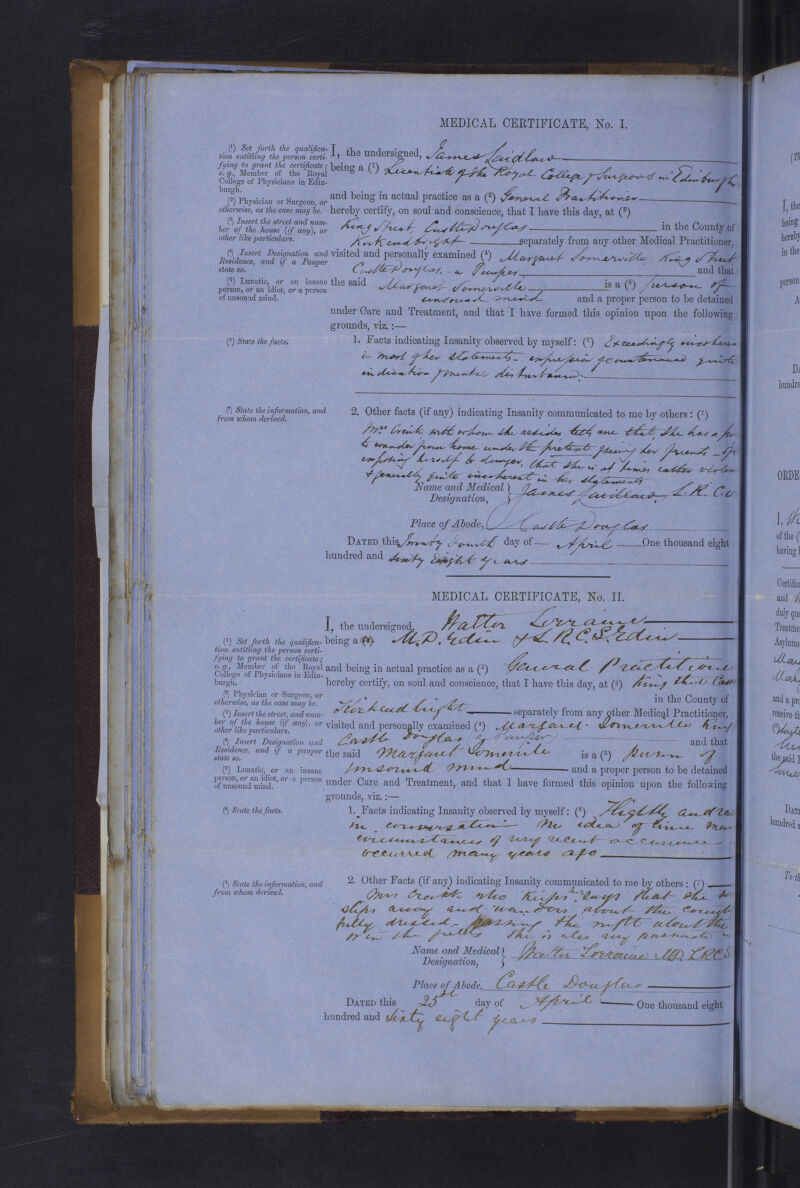 MEDICAL CERTIFICATE, No. I.
(1) Set forth the qualifica-
tion entitling the person certi-
fying to grant the certificate;
e.g., Member of the Royal
College of Physicians in Edin-
burgh.
(2) Physician or Surgeon, or
otherwise, as the case may be.
(3) Insert the street and num-
ber of the house (if any), or
other like particulars.
(4) Insert Designation and
Residence, and if a Pauper
state so.
(5) Lunatic, or an insane
person, or an idiot, or a person
of unsound mind.
(6) State the facts.
(7) State the information, and
from whom derived.
I, the undersigned, James Laidlaw
being a (1) Licentiate of the Royal College of Surgeons in Edinburgh
and being in actual practice as a (2) General Practitioner
hereby certify, on soul and conscience, that I have this day, at (3)
King Street, Castle Douglas in the County of
Kirkcudbright separately from any other Medical Practitioner,
visited and personally examined (4) Margaret Somerville King Street
Castle Douglas, - a Pauper and that
the said Margaret Somerville is a (5) person of
unsound mind and a proper person to be detained
under Care and Treatment, and that I have formed this opinion upon the following
grounds, viz.:—
1. Facts indicating Insanity observed by myself: (6) Exceedingly incoheren
in most of her statements - expression of countenance quite
indicative of mental disturbance.
2. Other facts (if any) indicating Insanity communicated to me by others: (7)
Mrs. with whom she resides tells me that, she has a
to wander from home under the pretext of seeing her friends - of
exposing herself to danger, that she is at times rather violen
& generally quite incoherent in her statements
Name and Medical
Designation, } James Laidlaw, L.R.C.
Place of Abode, Castle Douglas
DATED this Twenty fourth day of April One thousand eight
hundred and sixty eight years
MEDICAL CERTIFICATE, No. II.
(1) Set forth the qualifica-
tion entitling the person certi-
fying to grant the certificate;
e.g., Member of the Royal
College of Physicians in Edin-
burgh.
(2) Physician or Surgeon, or
otherwise, as the case may be.
(3) Insert the street, and num-
ber of the house (if any), or
other like particulars.
(4) Insert Designation and
Residence, and if a pauper
state so.
(5) Lunatic, or an insane
person, or an idiot, or a person
of unsound mind.
(6) State the facts.
(7) State the information, and
from whom derived.
I, the undersigned, Walter Lorraine
being a (1) M.D. Edin & L.R.C.S. Edin
and being in actual practice as a (2) General Practitione
hereby certify, on soul and conscience, that I have this day, at (3) King Street Cast
in the County of
Kirkcudbright separately from any other Medical Practitioner,
visited and personally examined (4) Margaret Somerville King
Castle Douglas (a Pauper) and that
the said Margaret Somerville is a (5) person of
unsound mind and a proper person to be detained
under Care and Treatment, and that I have formed this opinion upon the following
grounds, viz.:—
1. Facts indicating Insanity observed by myself: (6) Flighty and
in conversation no idea of time
circumstances of very recent occurrence
occurred many years ago
2. Other Facts (if any) indicating Insanity communicated to me by others: (7)
Mrs who keeps her, says that she
slips away and wanders about the
dressed - passing the night about the
or in the fields She is also very
Name and Medical
Designation, } Walter Lorraine MD. LRCS
Place of Abode, Castle Douglas
DATED this 25th day of April One thousand eight
hundred and sixty eight years
I, the
being
hereby
in the
person
hundre
ORDE
of the (
having b
Certific
and
duly qua
Treatme
Asylums
and a pr
receive th
the said
hundred
To th